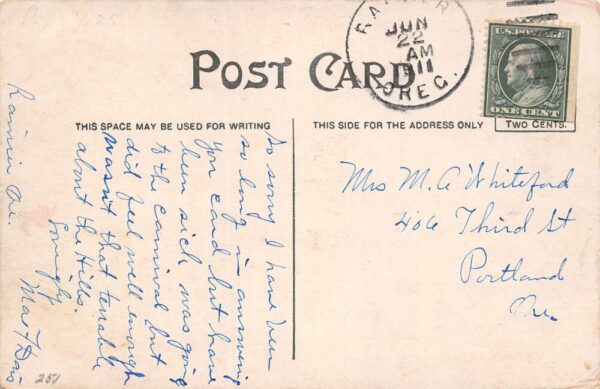 RAINIER
JUN
22
AM
1911
OREG.
U.S. POSTAGE
ONE CENT
POST CARD
THIS SPACE MAY BE USED FOR WRITING
THIS SIDE FOR THE ADDRESS ONLY
TWO CENTS.
Rainier Ore.
So sorry I have been
so long in answering
you card but have
been sick, was going
to the carnival but
did feel well enough
wasn't that terriable
about the Hills.
Lovingly
Mae Davis
251
Mrs M. A Whiteford
406 Third St
Portland
Ore.